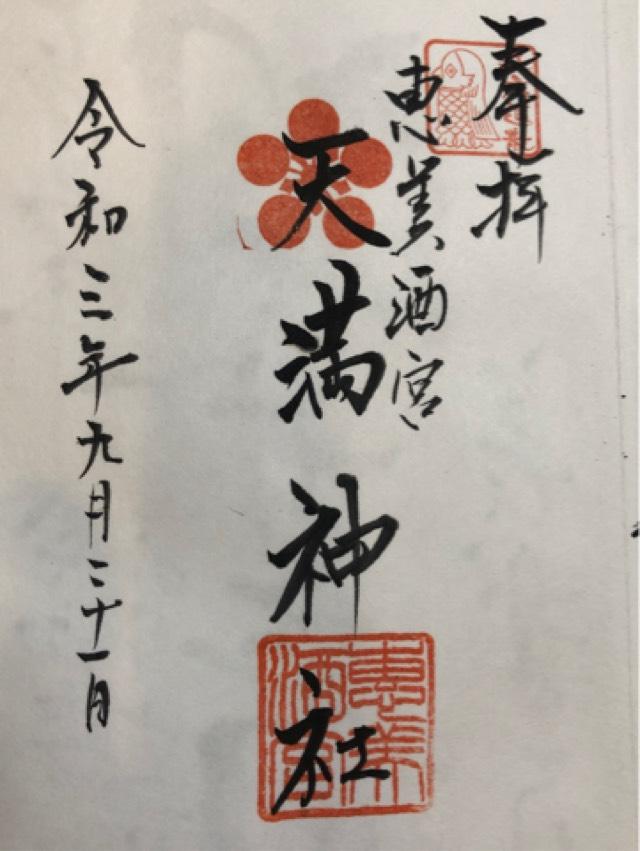 奉拝
恵美酒宮
天満神社
恵美
酒宮
令和三年九月二十一日